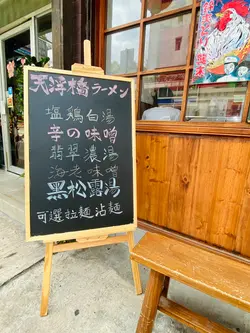 天浮橋ラーメン
塩鶏白湯
辛の味噌
翡翠濃湯
海老味噌
黑松露湯
可選拉麵沾麵